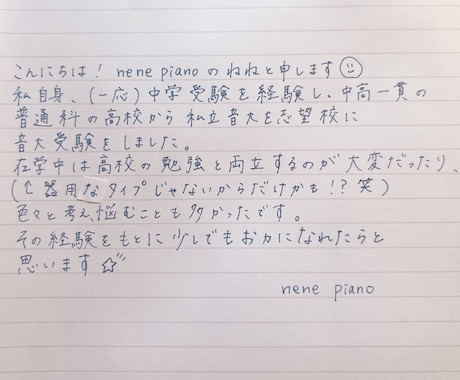 こんにちは! nene pianoのねねと申します☺
私自身、(一応)中学受験を経験し、中高一貫の
普通科の高校から私立音大を志望校に
音大受験をしました。
在学中は高校の勉強と両立するのが大変だったり、
(↑器用なタイプじゃないからだけかも!? 笑)
色々と考え悩むことも多かったです。
その経験をもとに少しでもお力になれたらと
思います☆
nene piano